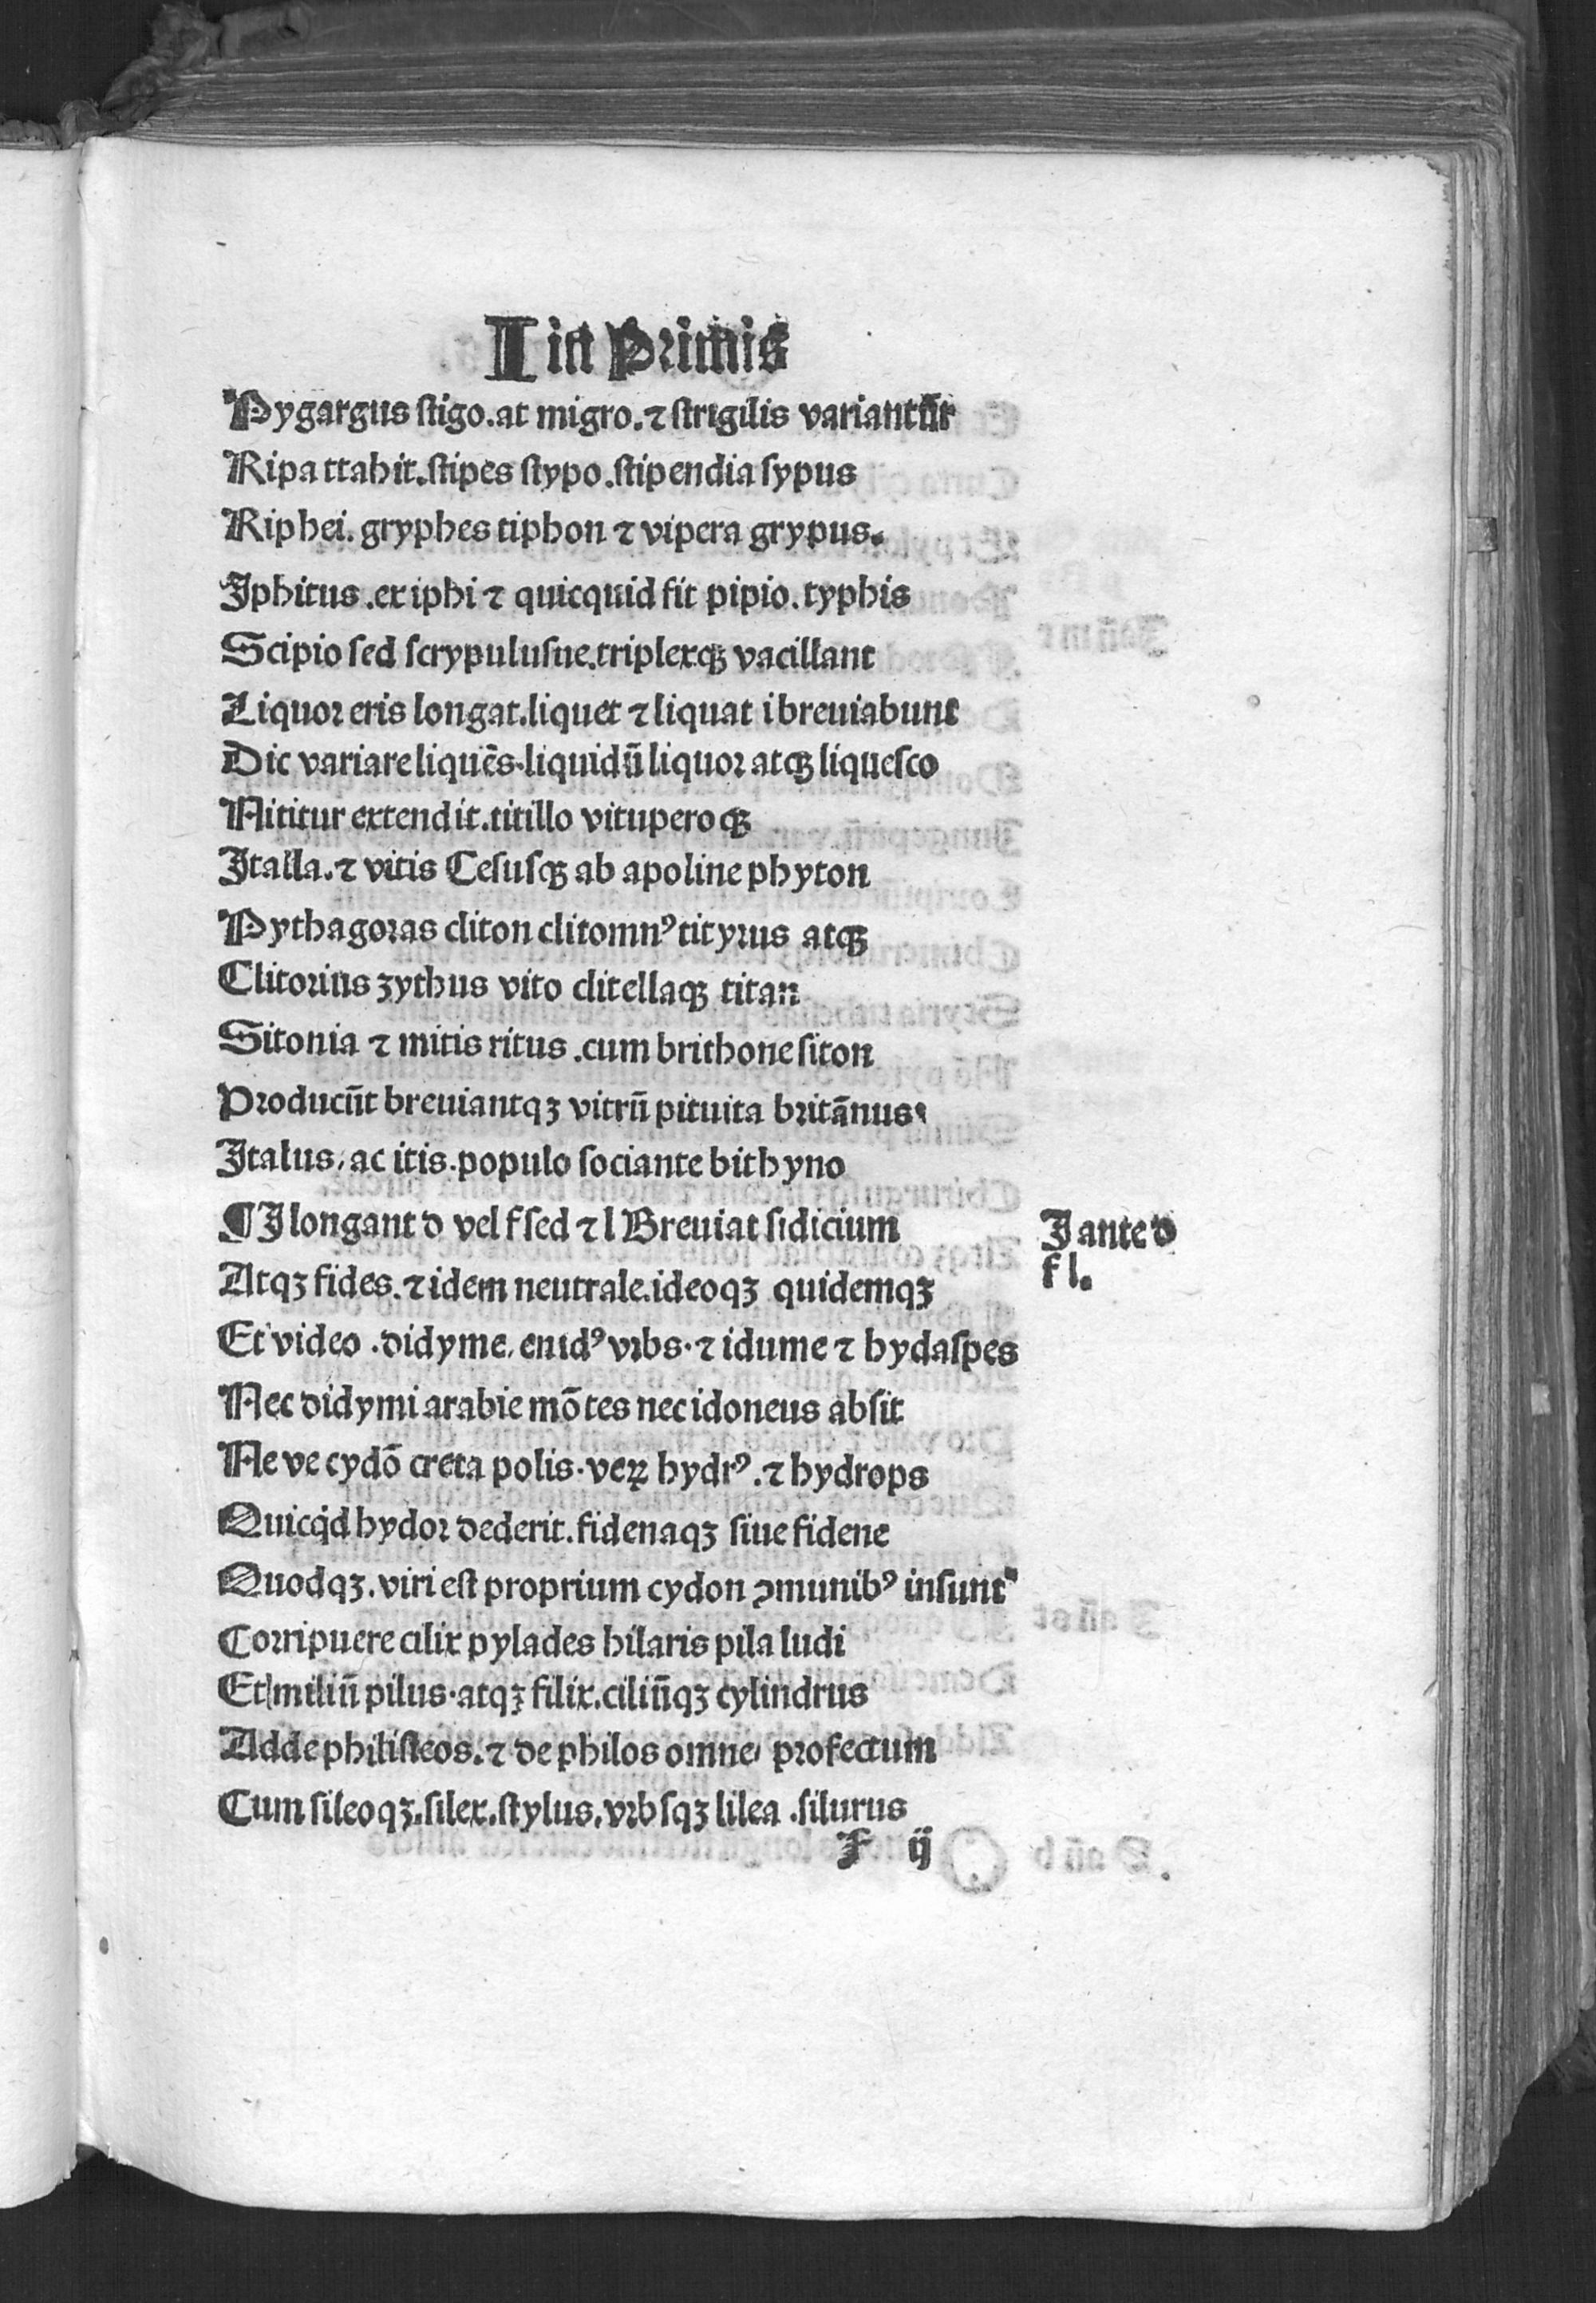 I in Primis
Pygargus ſtigo.at migro.⁊ ſtrigilis variantūr
Ripa ttahit.ſtipes ſtypo.ſtipendia ſypus
Riphei. gryphes tiphon ⁊ vipera grypus.
Iphitus .ex iphi ⁊ quicquid fit pipio. typhis
Scipio ſed ſcrypuluſue.triplexqꝫ vacillant
Liquoꝛ eris longat.liquet ⁊ liquat i breuiabunt
Dic variare liquēs.liquidū liquoꝛ atqꝫ liqueſco
Nititur extendit.titillo vitupero qꝫ
Italia.⁊ vitis Ceſuſqꝫ ab apoline phyton
Pythagoꝛas cliton clitomnꝰ tityrus atqꝫ
Clitoꝛius zythus vito clitellaqꝫ titan
Sitonia ⁊ mitis ritus .cum brithone ſiton
Pꝛoducūt breuiantqꝫ vitrū pituita bꝛitānus.
Italus, ac itis.populo ſociante bithyno
¶ I longant d vel f ſed ⁊ l Breuiat ſidicium
I ante d
f l.
Atqꝫ fides.⁊ idem neutrale.ideoqꝫ quidemqꝫ
Et video .didyme, enidꝰ vꝛbs.⁊ idume ⁊ hydaſpes
Nec didymi arabie mōtes nec idoneus abſit
Ne ve cydō creta polis.veꝝ hydrꝰ.⁊ hydrops
Quicqͥd hydoꝛ dederit.fidenaqꝫ ſiue fidene
Quodqꝫ.viri eſt proprium cydon ꝯmunibꝰ inſunt
Coꝛripuere cilix pylades hilaris pila ludi
Et miliū pilus.atqꝫ filix.ciliūqꝫ cylindrus
Adde philiſteos.⁊ de philos omne, pꝛofectum
Cum ſileoqꝫ.ſilex.ſtylus.vꝛbſqꝫ lilea .ſilurus
F ij